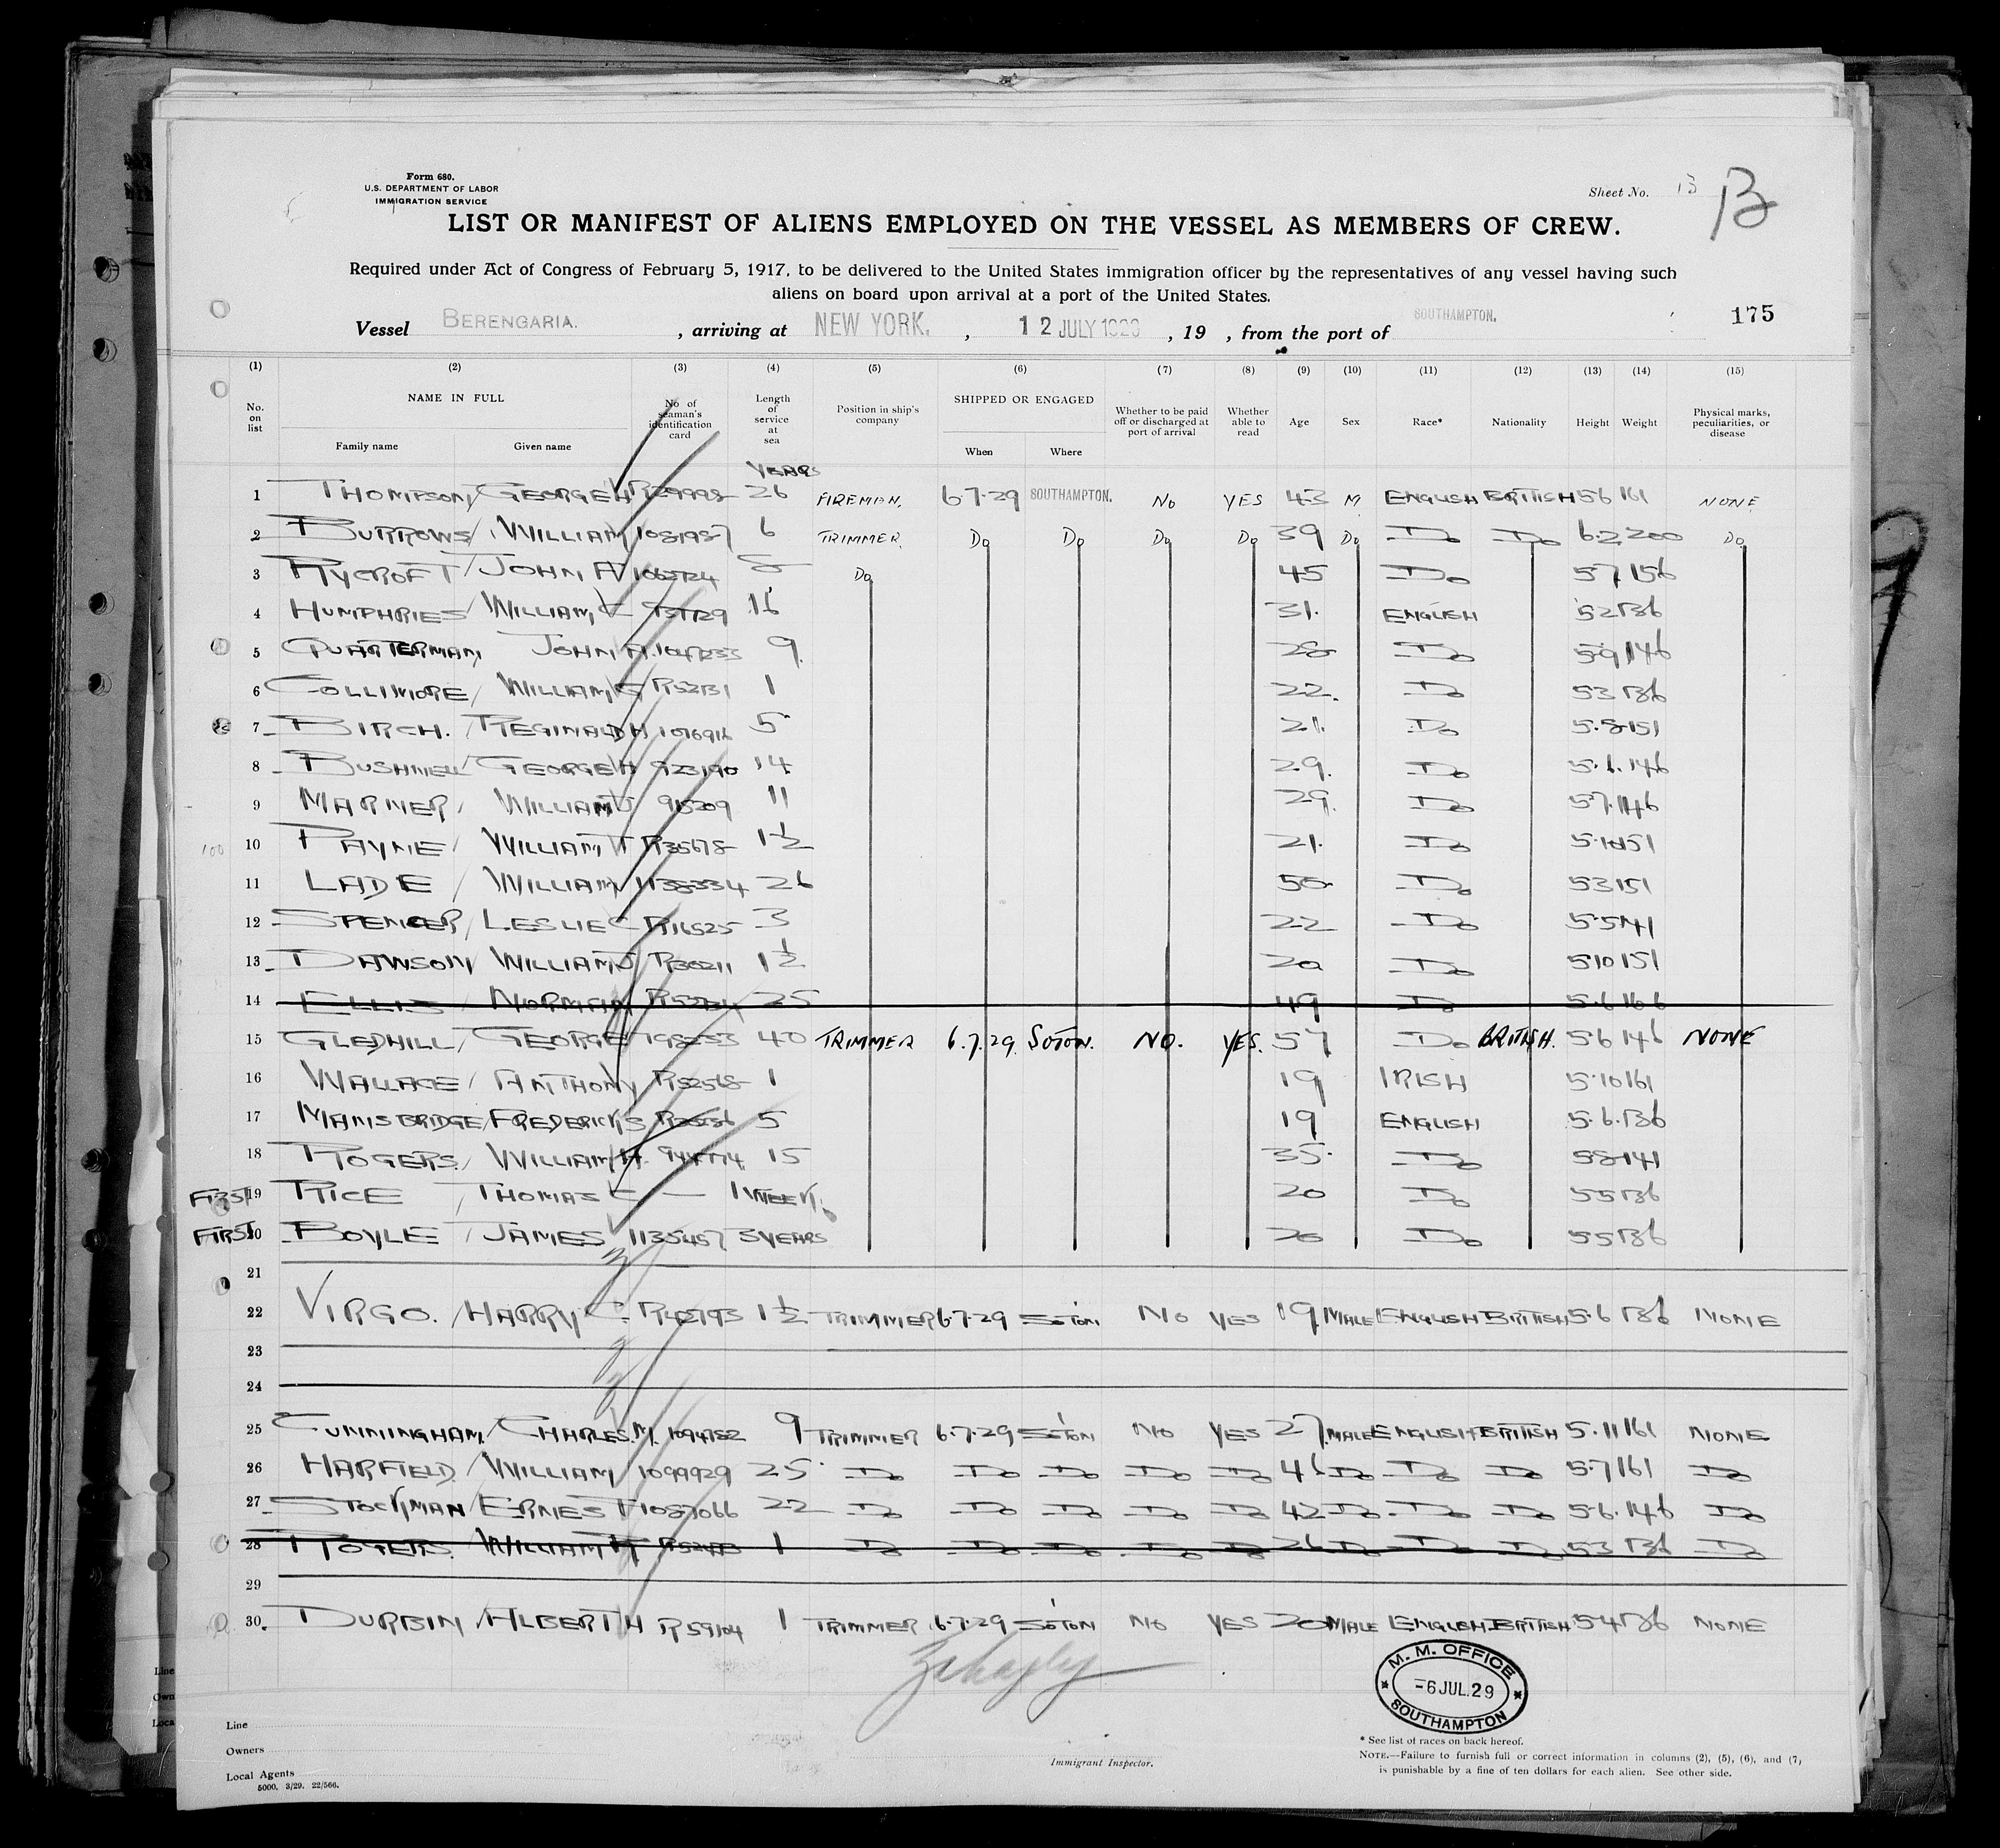 Form 680.
U.S. DEPARTMENT OF LABOR
IMMIGRATION SERVICE
Sheet No. 13 B
LIST OR MANIFEST OF ALIENS EMPLOYED ON THE VESSEL AS MEMBERS OF CREW.
Required under Act of Congress of February 5, 1917, to be delivered to the United States immigration officer by the representatives of any vessel having such
aliens on board upon arrival at a port of the United States.
175
Vessel BERENGARIA. , arriving at NEW YORK. , 12 JULY , 19 , from the port of SOUTHAMPTON.
(1) (2) (3) (4) (5) (6) (7) (8) (9) (10) (11) (12) (13) (14) (15)
No. on list NAME IN FULL Family name Given name No of seaman's identification card Length of service at sea Position in ship's company SHIPPED OR ENGAGED When Where Whether to be paid off or discharged at port of arrival Whether able to read Age Sex Race* Nationality Height Weight Physical marks, peculiarities, or disease
YEARS
1 THOMPSON GEORGE H R29998 26 FIREMAN. 6.7.29 SOUTHAMPTON. NO YES 43 M ENGLISH BRITISH 56 161 NONE
2 BURROWS WILLIAM 1081987 6 TRIMMER. Do Do Do Do 39 Do Do Do 6.2 200 Do
3 RYCROFT JOHN A 8 Do 45 Do 57 156
4 HUMPHRIES WILLIAM C 16 31. ENGLISH 52 136
5 QUARTERMAN JOHN A. 9 28 Do 59 146
6 COLLIMORE WILLIAM G R52131 1 22. Do 53 136
7 BIRCH. REGINALD H 1076916 5 21. Do 5.8 151
8 BUSHNELL GEORGE H 923190 14 29. Do 5.6. 146
9 MARNER WILLIAM J 915209 11 29. Do 57. 146
10 PAYNE WILLIAM T R35678 1½ 21. Do 5.10 151
11 LADE WILLIAM 1138334 26 50. Do 53 151
12 SPENCER LESLIE C R16525 3 22 Do 5.5 141
13 DAWSON WILLIAM J R30211 1½ 20 Do 510 151
14 ELLIS NORMAN 25 49 Do 5.6 166
15 GLEDHILL GEORGE 198233 40 TRIMMER 6.7.29. SOTON. NO. YES. 57 Do BRITISH. 56 146 NONE
16 WALLACE ANTHONY R52568 1 19 IRISH 5.10 161
17 MANSBRIDGE FREDERICK S 5 19 ENGLISH 5.6. 136
18 ROGERS WILLIAM H. 944774 15 35. Do 58 141
FIRST 19 RICE THOMAS C — 1 WEEK. 20 Do 55 136
FIRST 20 BOYLE JAMES 1135457 3 YEARS 20 Do 55 136
21
22 VIRGO. HARRY C. R42793 1½ TRIMMER 6.7.29 SOTON NO YES 19 MALE ENGLISH BRITISH 5.6 136 NONE
23
24
25 CUNNINGHAM CHARLES. M. 1094782 9 TRIMMER 6.7.29 SOTON NO YES 27 MALE ENGLISH BRITISH 5.11 161 NONE
26 HARFIELD WILLIAM 1099929 25 Do Do Do Do Do 46 Do Do Do 5.7 161 Do
27 STOCKMAN ERNEST F 1087066 22 Do Do Do Do Do 42 Do Do Do 5.6. 146 Do
28 ROGERS. WILLIAM H 1 Do Do Do Do Do 26 Do Do Do 53 136 Do
29
30. DURBIN ALBERT H R59104 1 TRIMMER 6.7.29 SOTON NO YES 20 MALE ENGLISH BRITISH 5.4 136 NONE
M. M. OFFICE
-6 JUL. 29
SOUTHAMPTON
Line
Owners
Local Agents
5000. 3/29. 22/566.
Immigrant Inspector.
* See list of races on back hereof.
NOTE.—Failure to furnish full or correct information in columns (2), (5), (6), and (7,
is punishable by a fine of ten dollars for each alien. See other side.